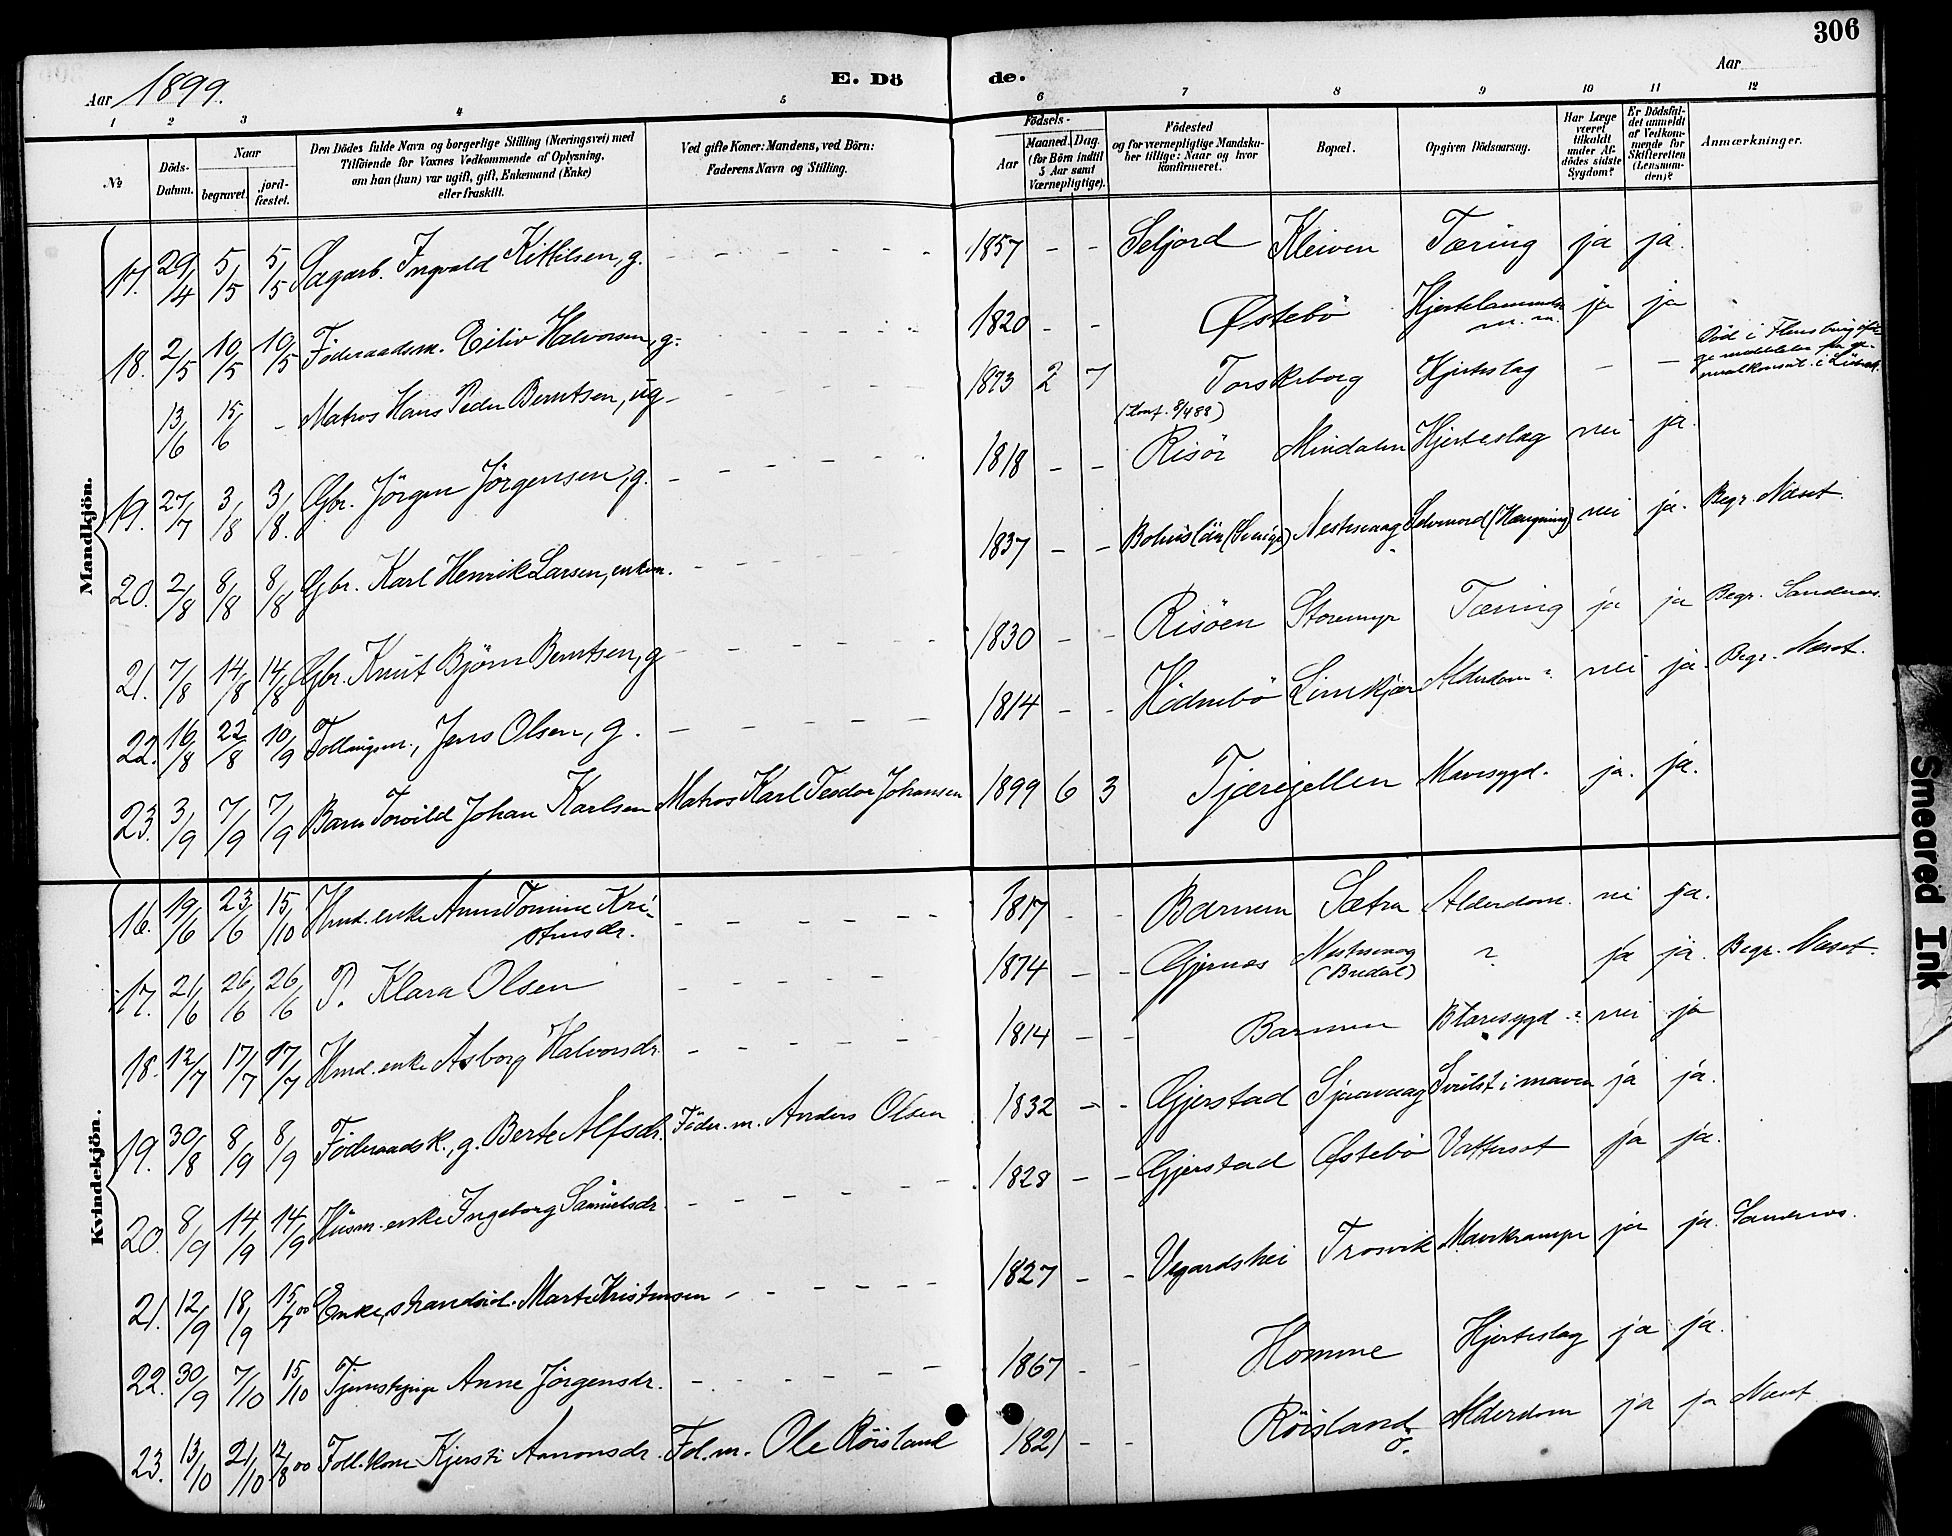 306
Aar 1899.
E. Dö de.
Aar
1 2 3 4 5 6 7 8 9 10 11 12
№
Döds-Datum.
Naar
begravet.
jord-fæstet.
Den Dödes fulde Navn og borgerlige Stilling (Næringsvei) med
Tilföiende for Voxnes Vedkommende af Oplysning,
om han (hun) var ugift, gift, Enkemand (Enke)
eller fraskilt.
Ved gifte Koner: Mandens, ved Börn:
Faderens Navn og Stilling.
Födsels-
Aar
Maaned. Dag.
(for Börn indtil
5 Aar samt
Værnepligtige).
Födested
og for værnepligtige Mandska-
ber tillige: Naar og hvor
konfirmeret.
Bopæl.
Opgiven Dödsaarsag.
Har Læge
været
tilkaldt
under Af-
dödes sidste
Sygdom?
Er Dödsfal-
det anmeldt
af Vedkom-
mende for
Skifteretten
(Lensman-
den)?
Anmærkninger.
Mandkjön.
17. 29/4 5/5 5/5 Sagarb. Ingvald Kittilsen, g. - - - - - 1857 - - Seljord Kleiven Tæring ja ja.
18. 2/5 10/5 10/5 Föderaadsm. Eiliv Halvorsen, g. - - - - - 1820 - - Østebö Hjertelammelse m. m. ja ja
13/6 15/6 - Matros Hans Peder Berntsen, ug - - - - - 1873 2 7 Torskeborg Hjerteslag - - Död i Flensburg
(Konf. 8/4 88)
19. 27/7 3/8 3/8. Gbr. Jörgen Jörgensen, g. - - - - - 1818 - - Risör Mindalen Hjerteslag nei ja.
20. 2/8 8/8 8/8 Gbr. Karl Henrik Larsen, enkem. - - - - 1837 - - Bohuslän (Sverige) Nestesvaag Selvmord (Hængning) nei ja. Begr. Næset.
21. 7/8 14/8 14/8 Gbr. Knut Björn Berntsen, g - - - - - 1830 - - Risöen Storemyr Tæring ja ja Begr. Sandnæs.
22. 16/8 22/8 10/9 Jens Olsen, g. - - - - - 1814 - - Hödnebö Limkjær Alderdom? nei ja. Begr. Næset.
23. 3/9 7/9 7/9 Barn Torvild Johan Karlsen Matros Karl Teodor Johansen 1899 6 3 Tjærejellen Mavesygd. ja. ja.
Kvindekjön.
16. 19/6 23/6 15/10 Hmd. enke Anne Tomine Kri- - - - - - 1817 - - Barmen Sætra Alderdom. nei ja.
stensdr.
17. 21/6 26/6 26/6 P. Klara Olsen - - - - - 1874 - - Gjernes Nestesvaag (Bredal) ? ja ja. Begr. Næset.
18. 12/7 17/7 17/7 Hmd. enke Asborg Halvorsdr. - - - - - 1814 - - Barmen Blæresygd.? nei ja
19. 30/8 8/9 8/9 Föderaadsk., g. Berte Alfsdr. Föder. m. Anders Olsen 1832 - - Gjerstad Sjaavaag Svulst i maven ja ja.
20. 8/9 14/9 14/9 Husm. enke Ingeborg Samuelsdr. - - - - - 1828 - - Gjerstad Østebö Vattersot ja ja.
21. 12/9 18/9 15/7 00 Enke, strandsid. Marte Kristensen - - - - 1827 - - Vegardshei Trosvik Mavekrampe ja ja. Sandnæs.
22. 30/9 7/10 15/10 Tjenestepige Anne Jörgensdr. - - - - - 1867 - - Homme Hjerteslag ja ja.
23. 13/10 21/10 12/8 00 Foll. kone Kjersti Aanonsdr. Fol. m. Ole Röisland 1821 - - Röisland ö. Alderdom ja ja Næset
Smeared Ink